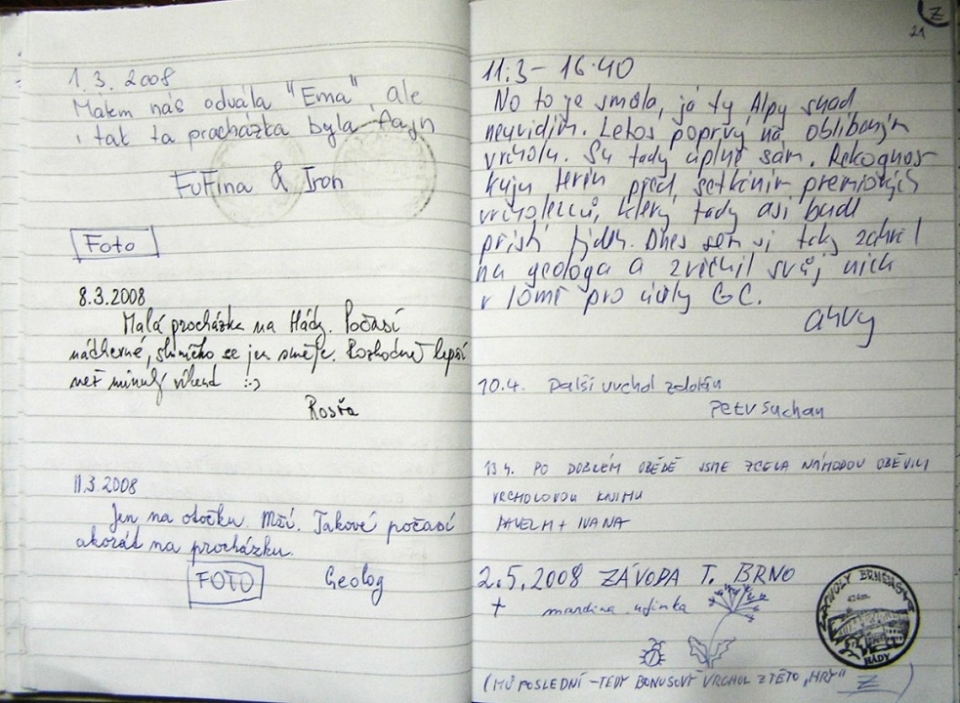 1. 3. 2008
Málem nás odvála "Ema", ale
i tak ta procházka byla fajn
FuFina & Iron
Foto
8.3.2008
Malá procházka na Hády. Počasí
nádherné, sluníčko se jen směje. Rozhodně lepší
než minulý víkend :-)
Rosťa
11.3.2008
Jen na otočku. Mží. Takové počasí
akorát na procházku.
FOTO Geolog
Z
21
11.3 - 16.40
No to je smůla, já ty Alpy snad
neuvidím. Letos poprvý na oblíbeným
vrcholu. Su tady úplně sám. Rekognos
kuju terén před setkáním premiových
vrcholezců, který tady asi bude
příští týden. Dnes sem si taky zahrál
na geologa a zvěčnil svůj nick
v lomě pro účely GC.
ahvy
10.4. Další vrchol zdolán
Petr Suchan
13.4. PO DOBRÉM OBĚDĚ JSME ZCELA NÁHODOU OBJEVILI
VRCHOLOVOU KNIHU
PAVEL M + IVANA
2.5.2008 ZÁVODA T. BRNO
+
VRCHOLY BRNĚNSKA
HÁDY
(MŮJ POSLEDNÍ - TEDY BONUSOVÝ VRCHOL Z TÉTO "HRY" Z )